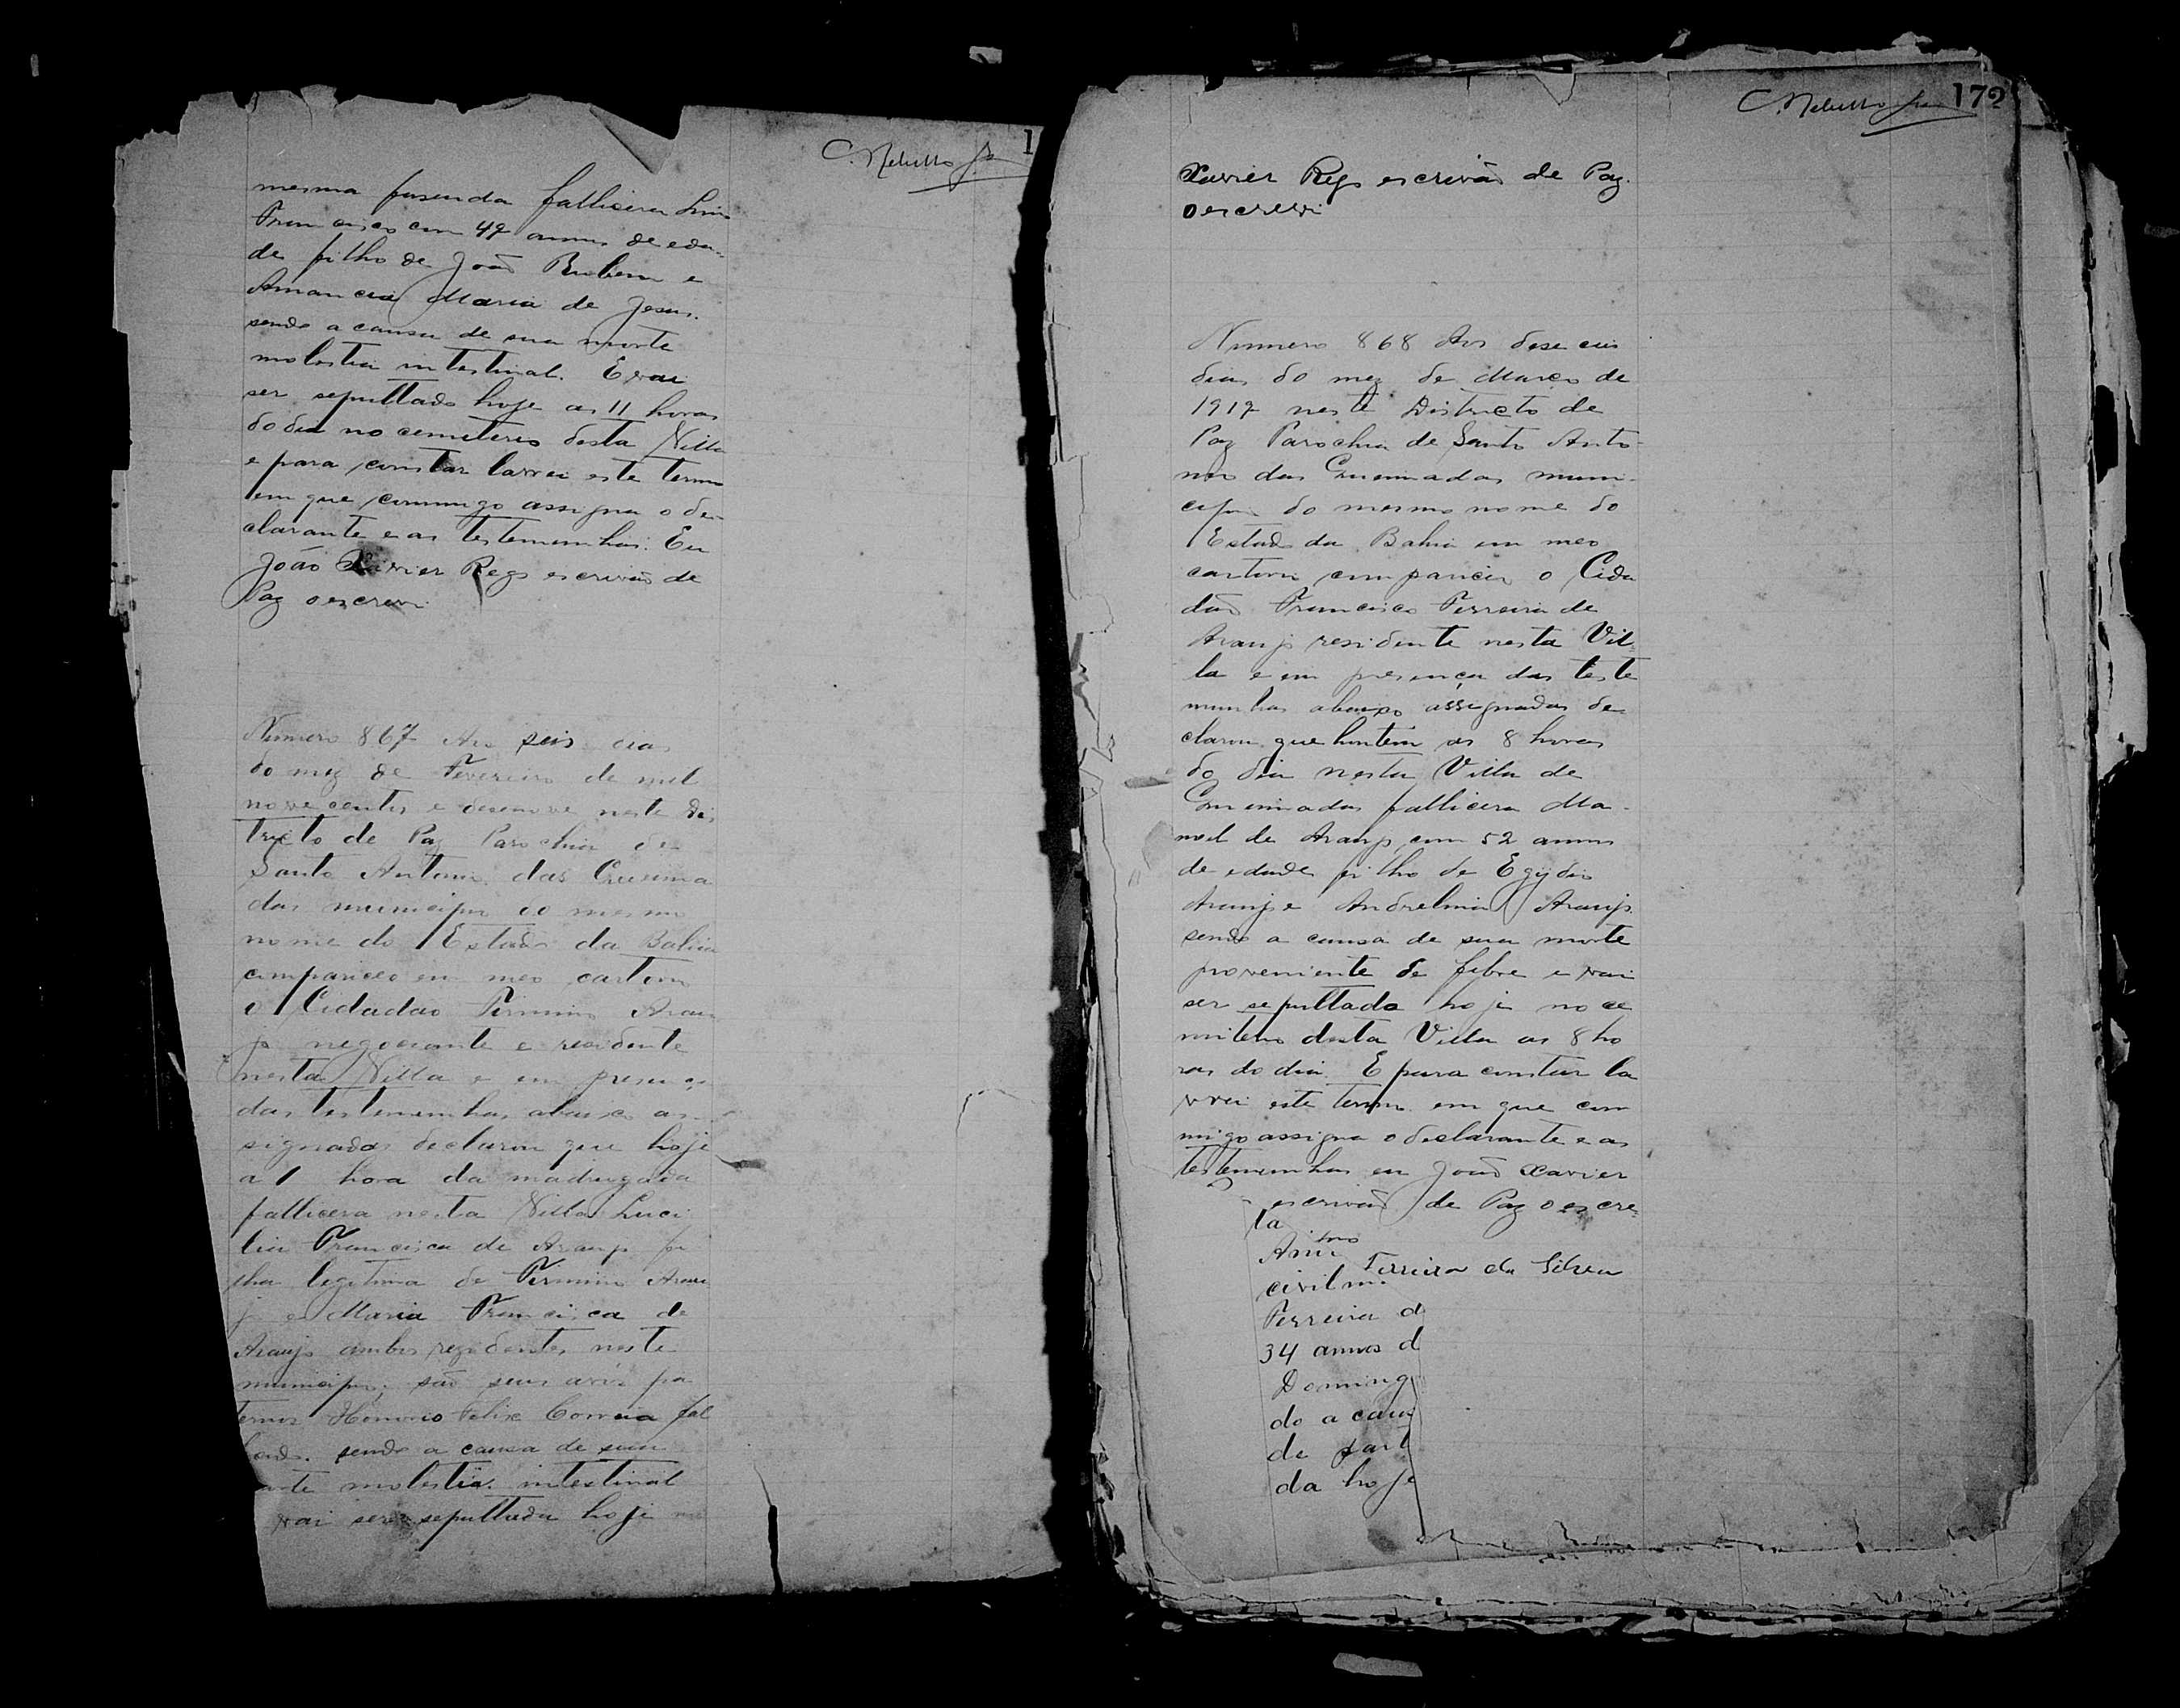 C. Nebutto Jr 1
mesma fasenda fallicera Luis
Francisco com 42 annos de eda-
de filho de João Rubem e
Amancia Maria de Jesus.
sendo a causa de sua morte
molestia intestinal. E vai
ser sepultado hoje as 11 horas
do dia no cemiterio desta Villa
e para constar lavrei este termo
em que commigo assigna o de-
clarante e as testemunhas. Eu
João Xavier Rego escrivão de
Paz o escrevi
Numero 867 Aos seis dias
do mez de Fevereiro de mil
nove centos e desenove neste Dis
tricto de Paz Parochia de
Santo Antonio das Queima
das municipio do mesmo
nome do Estado da Bahia
compariceo em meo cartorio
o Cidadão Firmino Arau
jo negociante e residente
nesta Villa e em presença
das testemunhas abaixo as
signadas declarou que hoje
a 1 hora da madrugada
fallicera nesta Villa Luci
lia Francisca de Araujo fi
lha legitima de Firmino Arau
jo e Maria Francisca de
Araujo ambos rezidentes neste
municipio; são seus avós pa
ternos Honorio Felix Correia fal
sendo a causa de sua
molestia intestinal
vai ser sepultada hoje no
C. Nebutto Jr 172
Xavier Rego escrivão de Paz.
o escrevi
Numero 868 Aos deseceis
dias do mez de Março de
1919 neste Districto de
Paz Parochia de Santo Anto-
nio das Queimadas muni-
cipio do mesmo nome do
Estado da Bahia em meo
cartorio compariceu o Cida
dão Francisco Ferreira de
Araujo residente nesta Vil
la e em presença das teste
munhas abaixo assignadas de-
clarou que hontem as 8 horas
do dia nesta Villa de
Queimadas fallicera Ma-
noel de Araujo com 52 annos
de edade filho de Egydio
Araujo e Andrelina Araujo.
sendo a causa de sua morte
proveniente de febre e vai
ser sepultado hoje no ce
miterio desta Villa as 8 ho
ras do dia. E para constar la
vrei este termo em que com
migo assigna o declarante e as
testemunhas eu João Xavier
escrivão de Paz o escre-
la
Ferreira da Silva
civilm
Ferreira d
34 annos d
Doming
do a caus
de part
da hoje